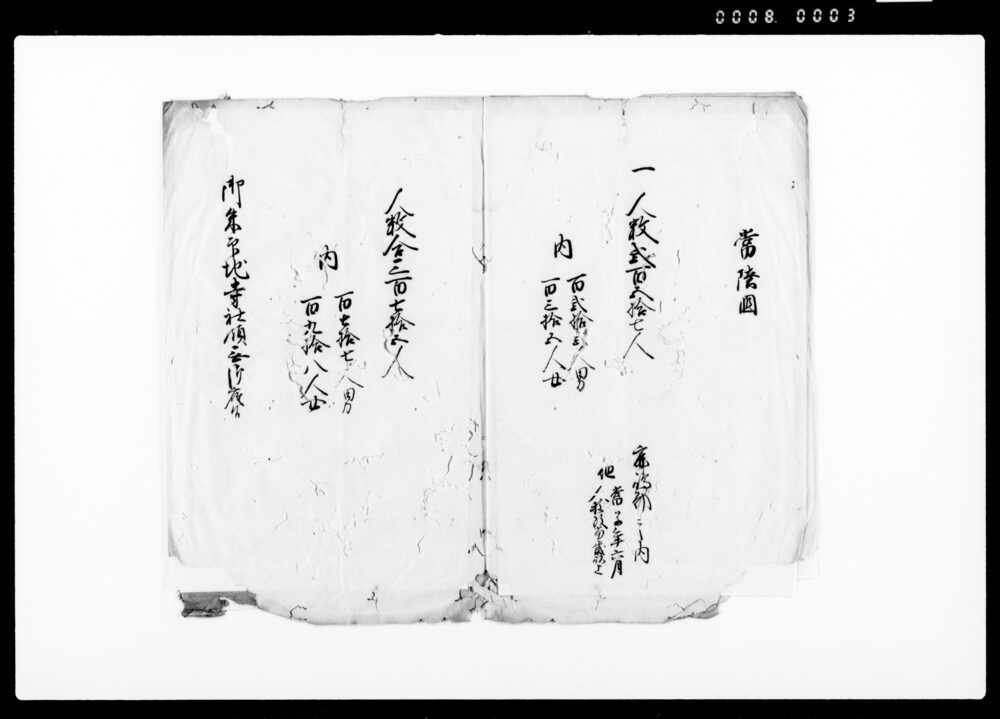 0008. 0003
常陸國
一 人数弐百五拾七人
内
百弐拾弐人男
百三拾五人女
鹿嶋郡之内
但
當子年六月
人数改
人数合三百七拾五人
内
百七拾七人男
百九拾八人女
御朱印地寺社領無御座候